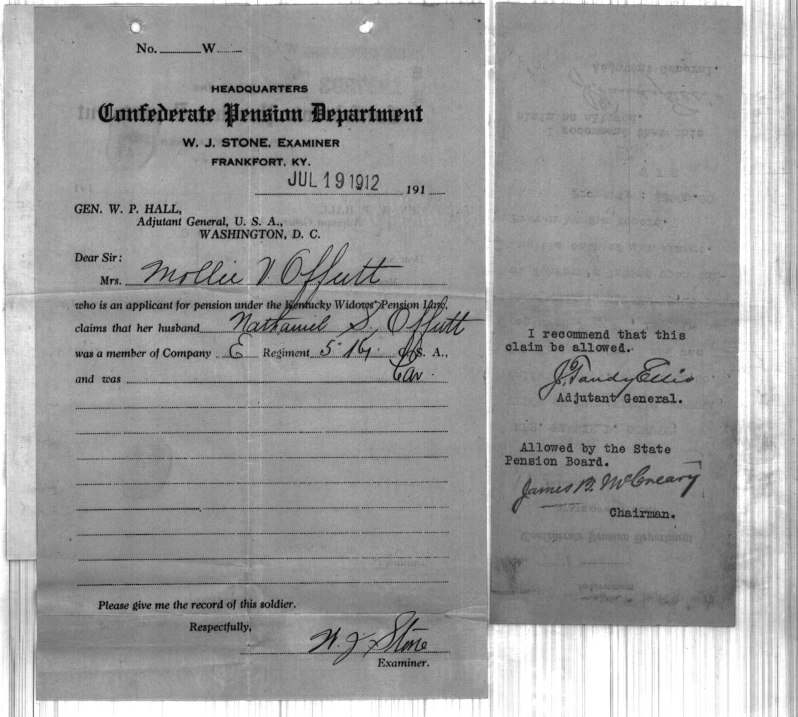 No. W
HEADQUARTERS
Confederate Pension Department
W. J. STONE, EXAMINER
FRANKFORT, KY.
JUL 19 1912 191
GEN. W. P. HALL,
Adjutant General, U. S. A.,
WASHINGTON, D. C.
Dear Sir:
Mrs. Mollie V Offutt
who is an applicant for pension under the Kentucky Widows' Pension Law,
claims that her husband Nathaniel S. Offutt
was a member of Company E Regiment 5" Ky. C. S. A.,
and was Cav.
Please give me the record of this soldier.
Respectfully,
W. J. Stone
Examiner.
I recommend that this
claim be allowed.
J. Tandy Ellis
Adjutant General.
Allowed by the State
Pension Board.
James B. McCreary
Chairman.